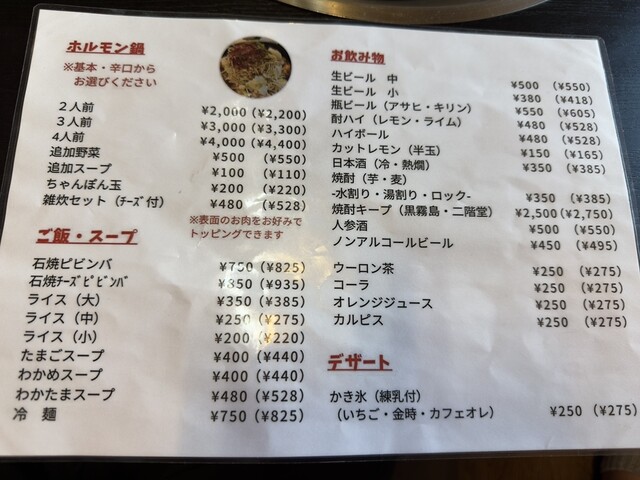 ホルモン鍋
※基本・辛口から
お選びください
２人前 ¥2,000 (¥2,200)
３人前 ¥3,000 (¥3,300)
4人前 ¥4,000 (¥4,400)
追加野菜 ¥500 (¥550)
追加スープ ¥100 (¥110)
ちゃんぽん玉 ¥200 (¥220)
雑炊セット（ﾁｰｽﾞ付） ¥480 (¥528)
※表面のお肉をお好みで
トッピングできます
ご飯・スープ
石焼ピビンバ ¥750 (¥825)
石焼ﾁｰｽﾞﾋﾞﾋﾞﾝﾊﾞ ¥850 (¥935)
ライス（大） ¥350 (¥385)
ライス（中） ¥250 (¥275)
ライス（小） ¥200 (¥220)
たまごスープ ¥400 (¥440)
わかめスープ ¥400 (¥440)
わかたまスープ ¥480 (¥528)
冷　麺 ¥750 (¥825)
お飲み物
生ビール　中 ¥500 (¥550)
生ビール　小 ¥380 (¥418)
瓶ビール（アサヒ・キリン） ¥550 (¥605)
酎ハイ（レモン・ライム） ¥480 (¥528)
ハイボール ¥480 (¥528)
カットレモン（半玉） ¥150 (¥165)
日本酒（冷・熱燗） ¥350 (¥385)
焼酎（芋・麦）
-水割り・湯割り・ロック- ¥350 (¥385)
焼酎キープ（黒霧島・二階堂） ¥2,500 (¥2,750)
人参酒 ¥500 (¥550)
ノンアルコールビール ¥450 (¥495)
ウーロン茶 ¥250 (¥275)
コーラ ¥250 (¥275)
オレンジジュース ¥250 (¥275)
カルピス ¥250 (¥275)
デザート
かき氷（練乳付）
（いちご・金時・カフェオレ） ¥250 (¥275)